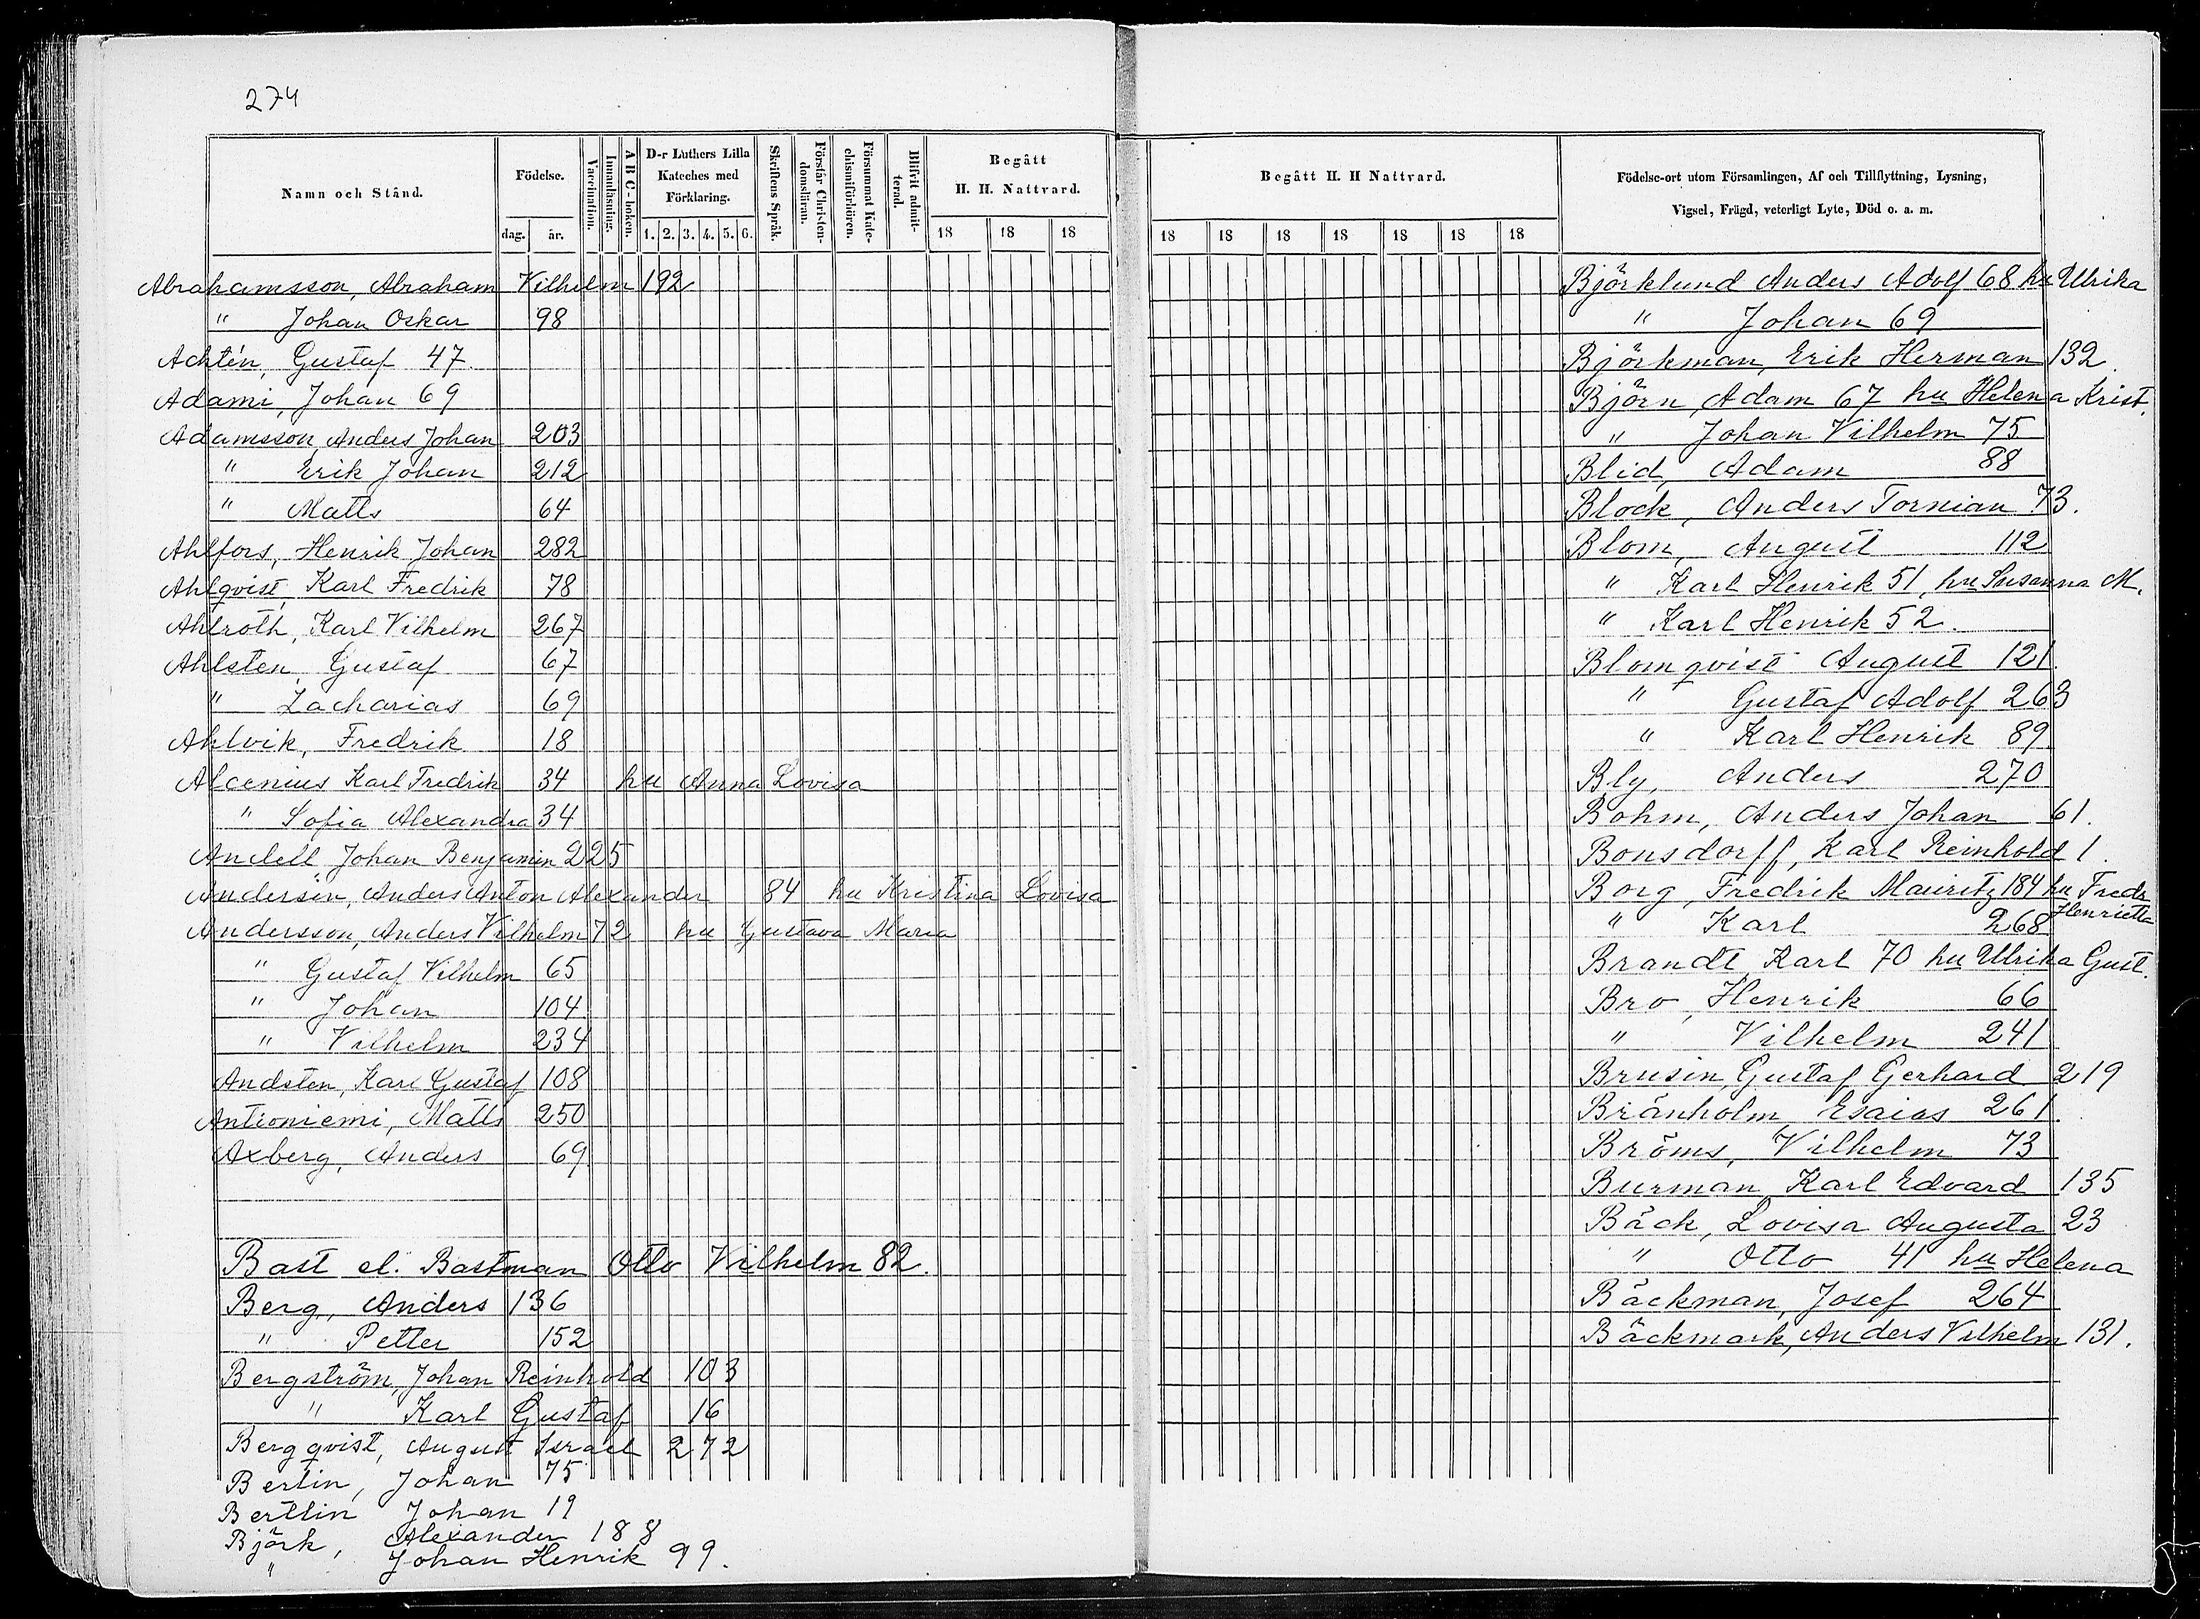 274
Namn och Stånd.
Födelse.
dag.
år.
Vaccination.
Innanläsning.
A B C-boken.
D-r Luthers Lilla
Kateches med
Förklaring.
1. 2. 3. 4. 5. 6.
Skriftens Språk.
Förstår Christen-
domsläran.
Försummat Kate-
chismiförhören.
Blifvit admit-
terad.
Begått
H. H. Nattvard.
18 18 18
Abrahamsson, Abraham Vilhelm 192
" Johan Oskar 98
Achtén, Gustaf 47
Adami, Johan 69
Adamsson, Anders Johan 203
" Erik Johan 212
" Matts 64
Ahlfors, Henrik Johan 282
Ahlqvist, Karl Fredrik 78
Ahlroth, Karl Vilhelm 267
Ahlsten, Gustaf 67
" Zacharias 69
Ahlvik, Fredrik 18
Alcenius Karl Fredrik 34 hu Anna Lovisa
" Sofia Alexandra 34
Andell, Johan Benjamin 225
Andersin, Anders Anton Alexander 84 hu Kristina Lovisa
Andersson, Anders Vilhelm 72 hu Gustava Maria
" Gustaf Vilhelm 65
" Johan 104
" Vilhelm 234
Andsten, Karl Gustaf 108
Antioniemi, Matts 250
Axberg, Anders 69
Bast el. Bastman Otto Vilhelm 82.
Berg, Anders 136
" Petter 152
Bergström, Johan Reinhold 103
" Karl Gustaf 16
Bergqvist, August Israel 272
Berlin, Johan 75
Bertlin Johan 19
Björk, Alexander 188
" Johan Henrik 99.
Begått H. H Nattvard.
18 18 18 18 18 18 18
Födelse-ort utom Församlingen, Af och Tillflyttning, Lysning,
Vigsel, Frägd, veterligt Lyte, Död o. a. m.
Björklund Anders Adolf 68 hu Ulrika
" Johan 69
Björkman, Erik Herman 132.
Björn, Adam 67 hu Helena Krist.
" Johan Vilhelm 75
Blid, Adam 88
Block, Anders Tornian 73.
Blom, August 112
" Karl Henrik 51, hu Susanna M.
" Karl Henrik 52.
Blomqvist August 121.
" Gustaf Adolf 263
" Karl Henrik 89
Bly, Anders 270
Bohm, Anders Johan 61.
Bonsdorff, Karl Reinhold 1.
Borg, Fredrik Mauritz 184 hu Fredr
Henrietta
" Karl 268
Brandt, Karl 70 hu Ulrika Gust.
Bro, Henrik 66
" Vilhelm 241
Brusin, Gustaf Gerhard 219
Bränholm Esaias 261.
Bröms, Vilhelm 73
Burman Karl Edvard 135
Bäck, Lovisa Augusta 23
" Otto 41 hu Helena
Bäckman, Josef 264
Bäckmark, Anders Vilhelm 131.